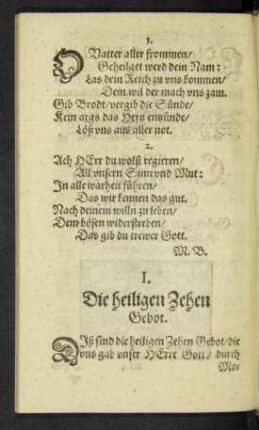 1.
O Vatter aller frommen/
Geheilget werd dein Nam:
Las dein Reich zu vns kommen/
Dein wil der mach vns zam.
Gib Brodt/vergib die Sünde/
Kein args das Hertz entzünde/
Löß vns aus aller not.
2.
Ach HErr du wolst regieren/
All vnsern Sinn vnd Mut:
In alle warheit führen/
Das wir kennen das gut.
Nach deinem willn zu leben/
Dem bösen widerstreben/
Das gib du trewer Gott.
M. B.
I.
Die heiligen Zehen
Gebot.
Diß sind die heiligen Zehen Gebot/die
vns gab vnser HErre Gott/ durch
Mos-